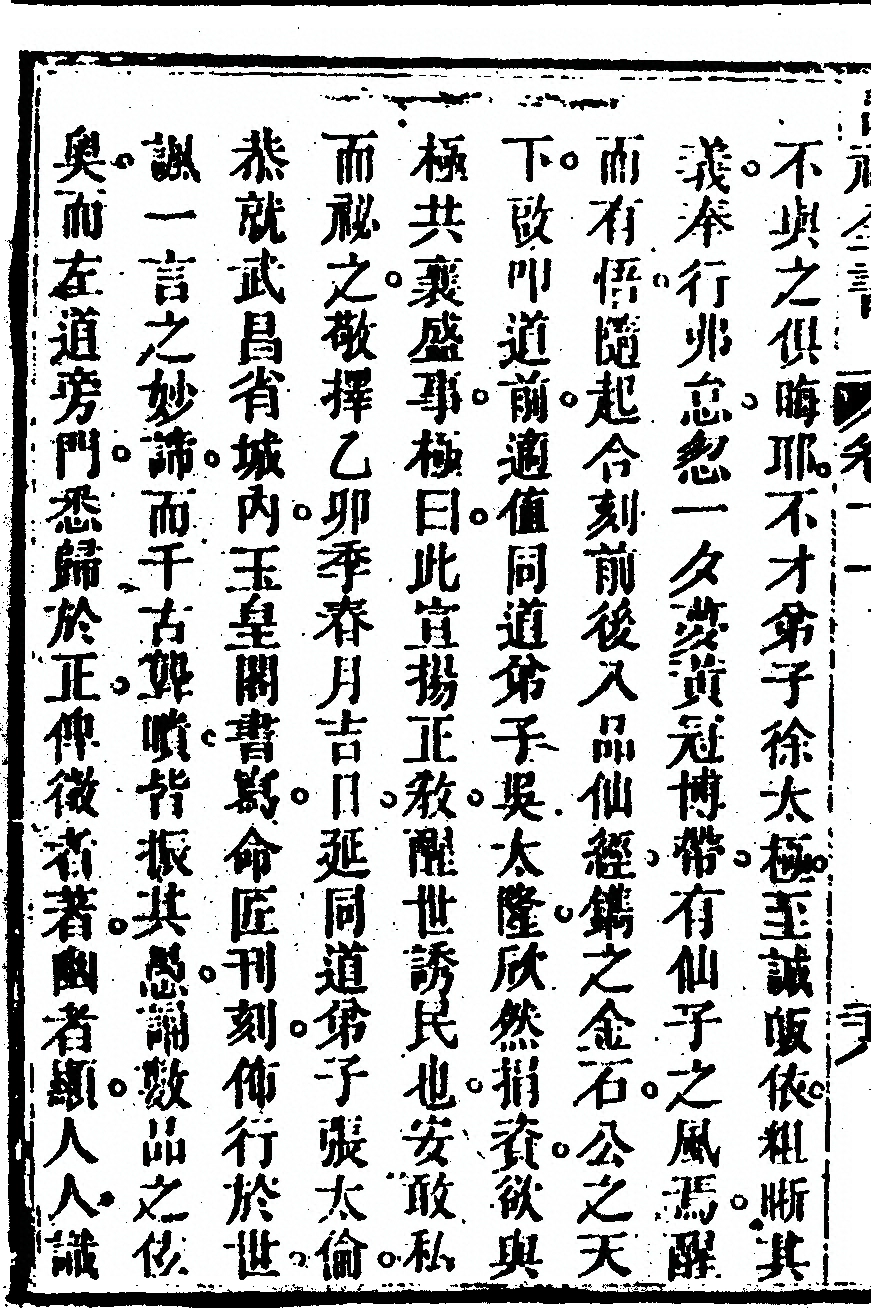 不與之俱晦耶不才弟子徐太極至誠皈依粗晰其
義奉行弗怠忽一夕夢黃冠博帶有仙子之風焉醒
而有悟隨起合刻前後八品仙經鐫之金石公之天
下敬叩道前適值同道弟子吳太隆欣然捐資欲與
極共襄盛事極曰此宣揚正教醒世誘民也安敢私
而祕之敬擇乙卯季春月吉日延同道弟子張太倫
恭就武昌省城內玉皇閣書寫命匠刊刻佈行於世
諷一言之妙諦而千古聾聵皆振其愚誦數品之
奧而左道旁門悉歸於正俾微者著幽者顯人人識